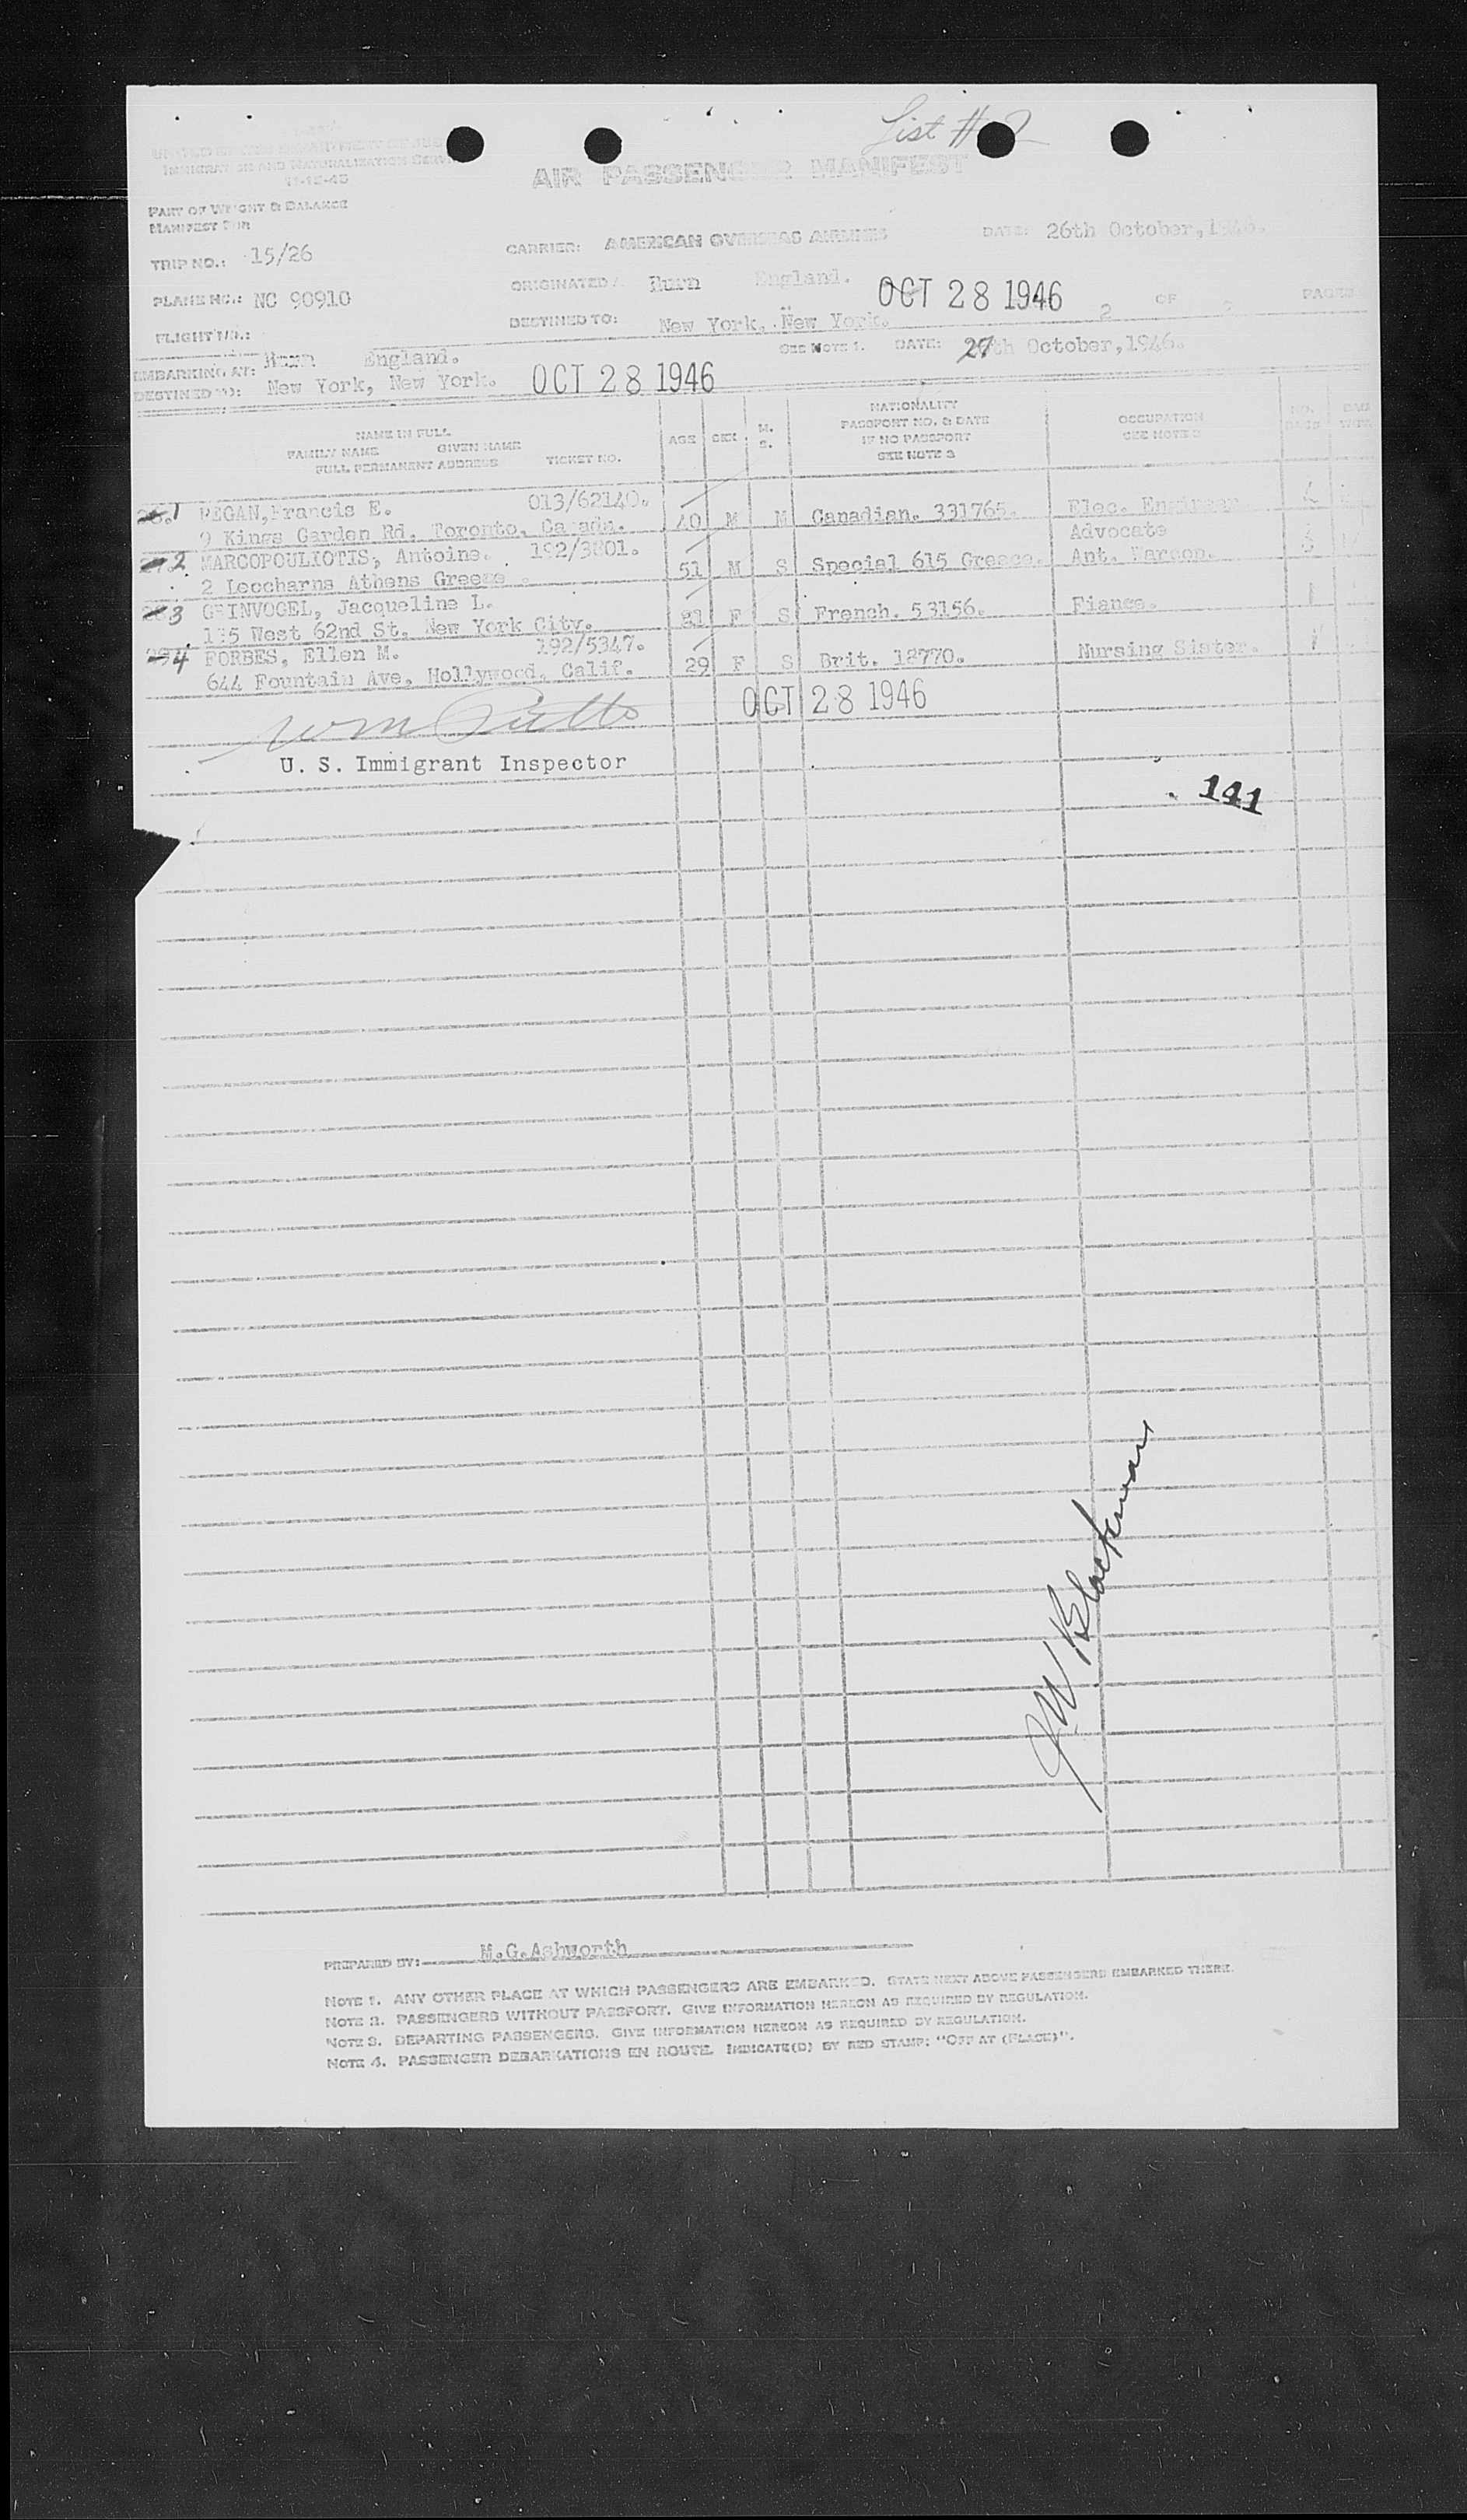 List # 2
UNITED STATES DEPARTMENT OF JUS
IMMIGRATION AND NATURALIZATION SERV
11-12-45
AIR PASSENGER MANIFEST
PART OF WEIGHT & BALANCE
MANIFEST FOR
TRIP NO.: 15/26
CARRIER: AMERICAN OVERSEAS AIRLINES
DATE: 26th October, 1946.
PLANE NO.: NC 90910
ORIGINATED England.
OCT 28 1946
FLIGHT NO.:
DESTINED TO: New York, New York.
2 OF 2 PAGES
EMBARKING AT: England.
SEE NOTE 1. DATE: 27th October, 1946.
DESTINED TO: New York, New York.
OCT 28 1946
NAME IN FULL
FAMILY NAME GIVEN NAME
FULL PERMANENT ADDRESS TICKET NO.
AGE SEX M. S.
NATIONALITY
PASSPORT NO. & DATE
IF NO PASSPORT
SEE NOTE 2
OCCUPATION
SEE NOTE 3
1 REGAN, Francis E. 013/62140.
9 Kings Garden Rd, Toronto, Canada. 40 M M Canadian. 331765. Elec. Engineer
2 MARCOPOULIOTIS, Antoine. 192/3801. Advocate
2 Leocharns Athens Greece 51 M S Special 615 Greece. Ant. Warcop.
3 GRINVOGEL, Jacqueline L.
135 West 62nd St, New York City. 21 F S French. 53156. Fiance.
4 FORBES, Ellen M. 192/5347.
644 Fountain Ave, Hollywood, Calif. 29 F S Brit. 18770. Nursing Sister.
OCT 28 1946
U. S. Immigrant Inspector
141
J.W. Blackman
PREPARED BY: M.G.Ashworth
NOTE 1. ANY OTHER PLACE AT WHICH PASSENGERS ARE EMBARKED. STATE NEXT ABOVE PASSENGERS EMBARKED THERE.
NOTE 2. PASSENGERS WITHOUT PASSPORT. GIVE INFORMATION HEREON AS REQUIRED BY REGULATION.
NOTE 3. DEPARTING PASSENGERS. GIVE INFORMATION HEREON AS REQUIRED BY REGULATION.
NOTE 4. PASSENGER DEBARKATIONS EN ROUTE. INDICATE(D) BY RED STAMP: "OFF AT (PLACE)".